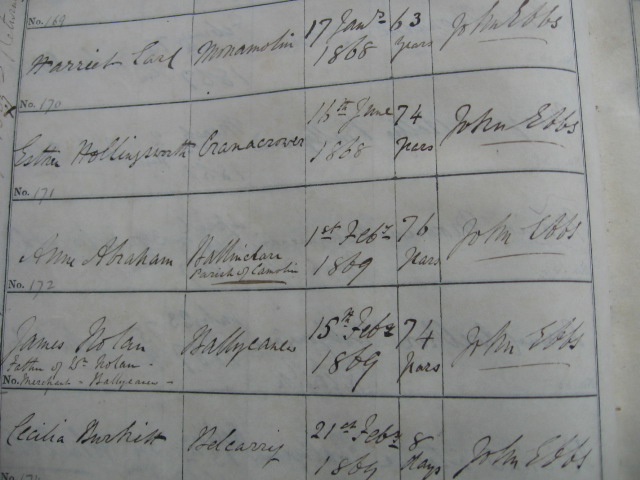 No. 169
Harriet Earl Monamolin 17 Janry 1868 63 years John Ebbs
No. 170
Esther Hollingsworth Cranacrower 16th June 1868 74 years John Ebbs
No. 171
Anne Abraham Ballinclare Parish of Camolin 1st Febry 1869 76 years John Ebbs
No. 172
James Nolan Ballycanew 15th Feby 1869 74 years John Ebbs
Father of Wm Nolan -
No. Merchant - Ballycanew -
Cecilia Burkitt 21st Feby 1869 8 days John Ebbs